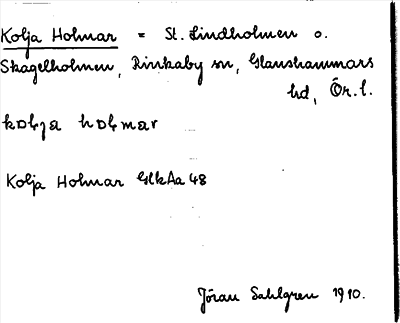 Kolja Holmar = St. Lindholmen o.
Skagelholmen, Rinkaby sn, Glanshammars
hd, Ör. l.
kolja holmar
Kolja Holmar GlkAa 48
Jöran Sahlgren 1910.